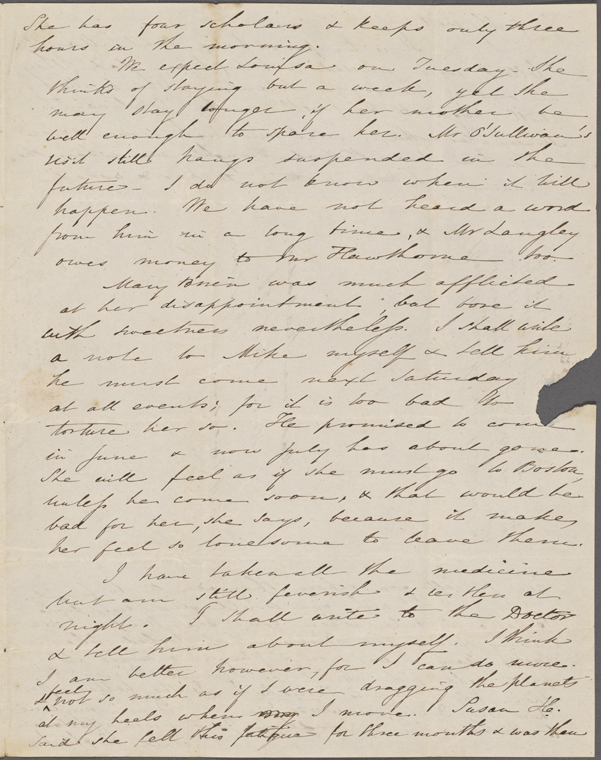 She has four scholars & keeps only three
hours in the morning.
We expect Louisa on Tuesday. She
thinks of staying but a week, yet she
may stay longer, if her mother be
well enough to spare her. Mr O'Sullivan's
visit still hangs suspended in the
future — I do not know when it will
happen. We have not heard a word
from him in a long time, & Mr Langley
owes money to Mr Hawthorne too.
Mary Brien was much afflicted
at her disappointment, but bore it
with sweetness nevertheless. I shall write
a note to Mike myself & tell him
he must come next Saturday
at all events; for it is too bad to
torture her so. He promised to come
in June & now July has about gone.
She will feel as if she must go to Boston,
unless he come soon, & that would be
bad for her, she says, because it makes
her feel so lonesome to leave them.
I have taken all the medicine
but am still feverish & restless at
night. I shall write to the Doctor
& tell him about myself. I think
I am better however, for I can do more.
& feel not so much as if I were dragging the planets
at my heels when I move. Susan H.
said she felt this fatigue for three months & was then